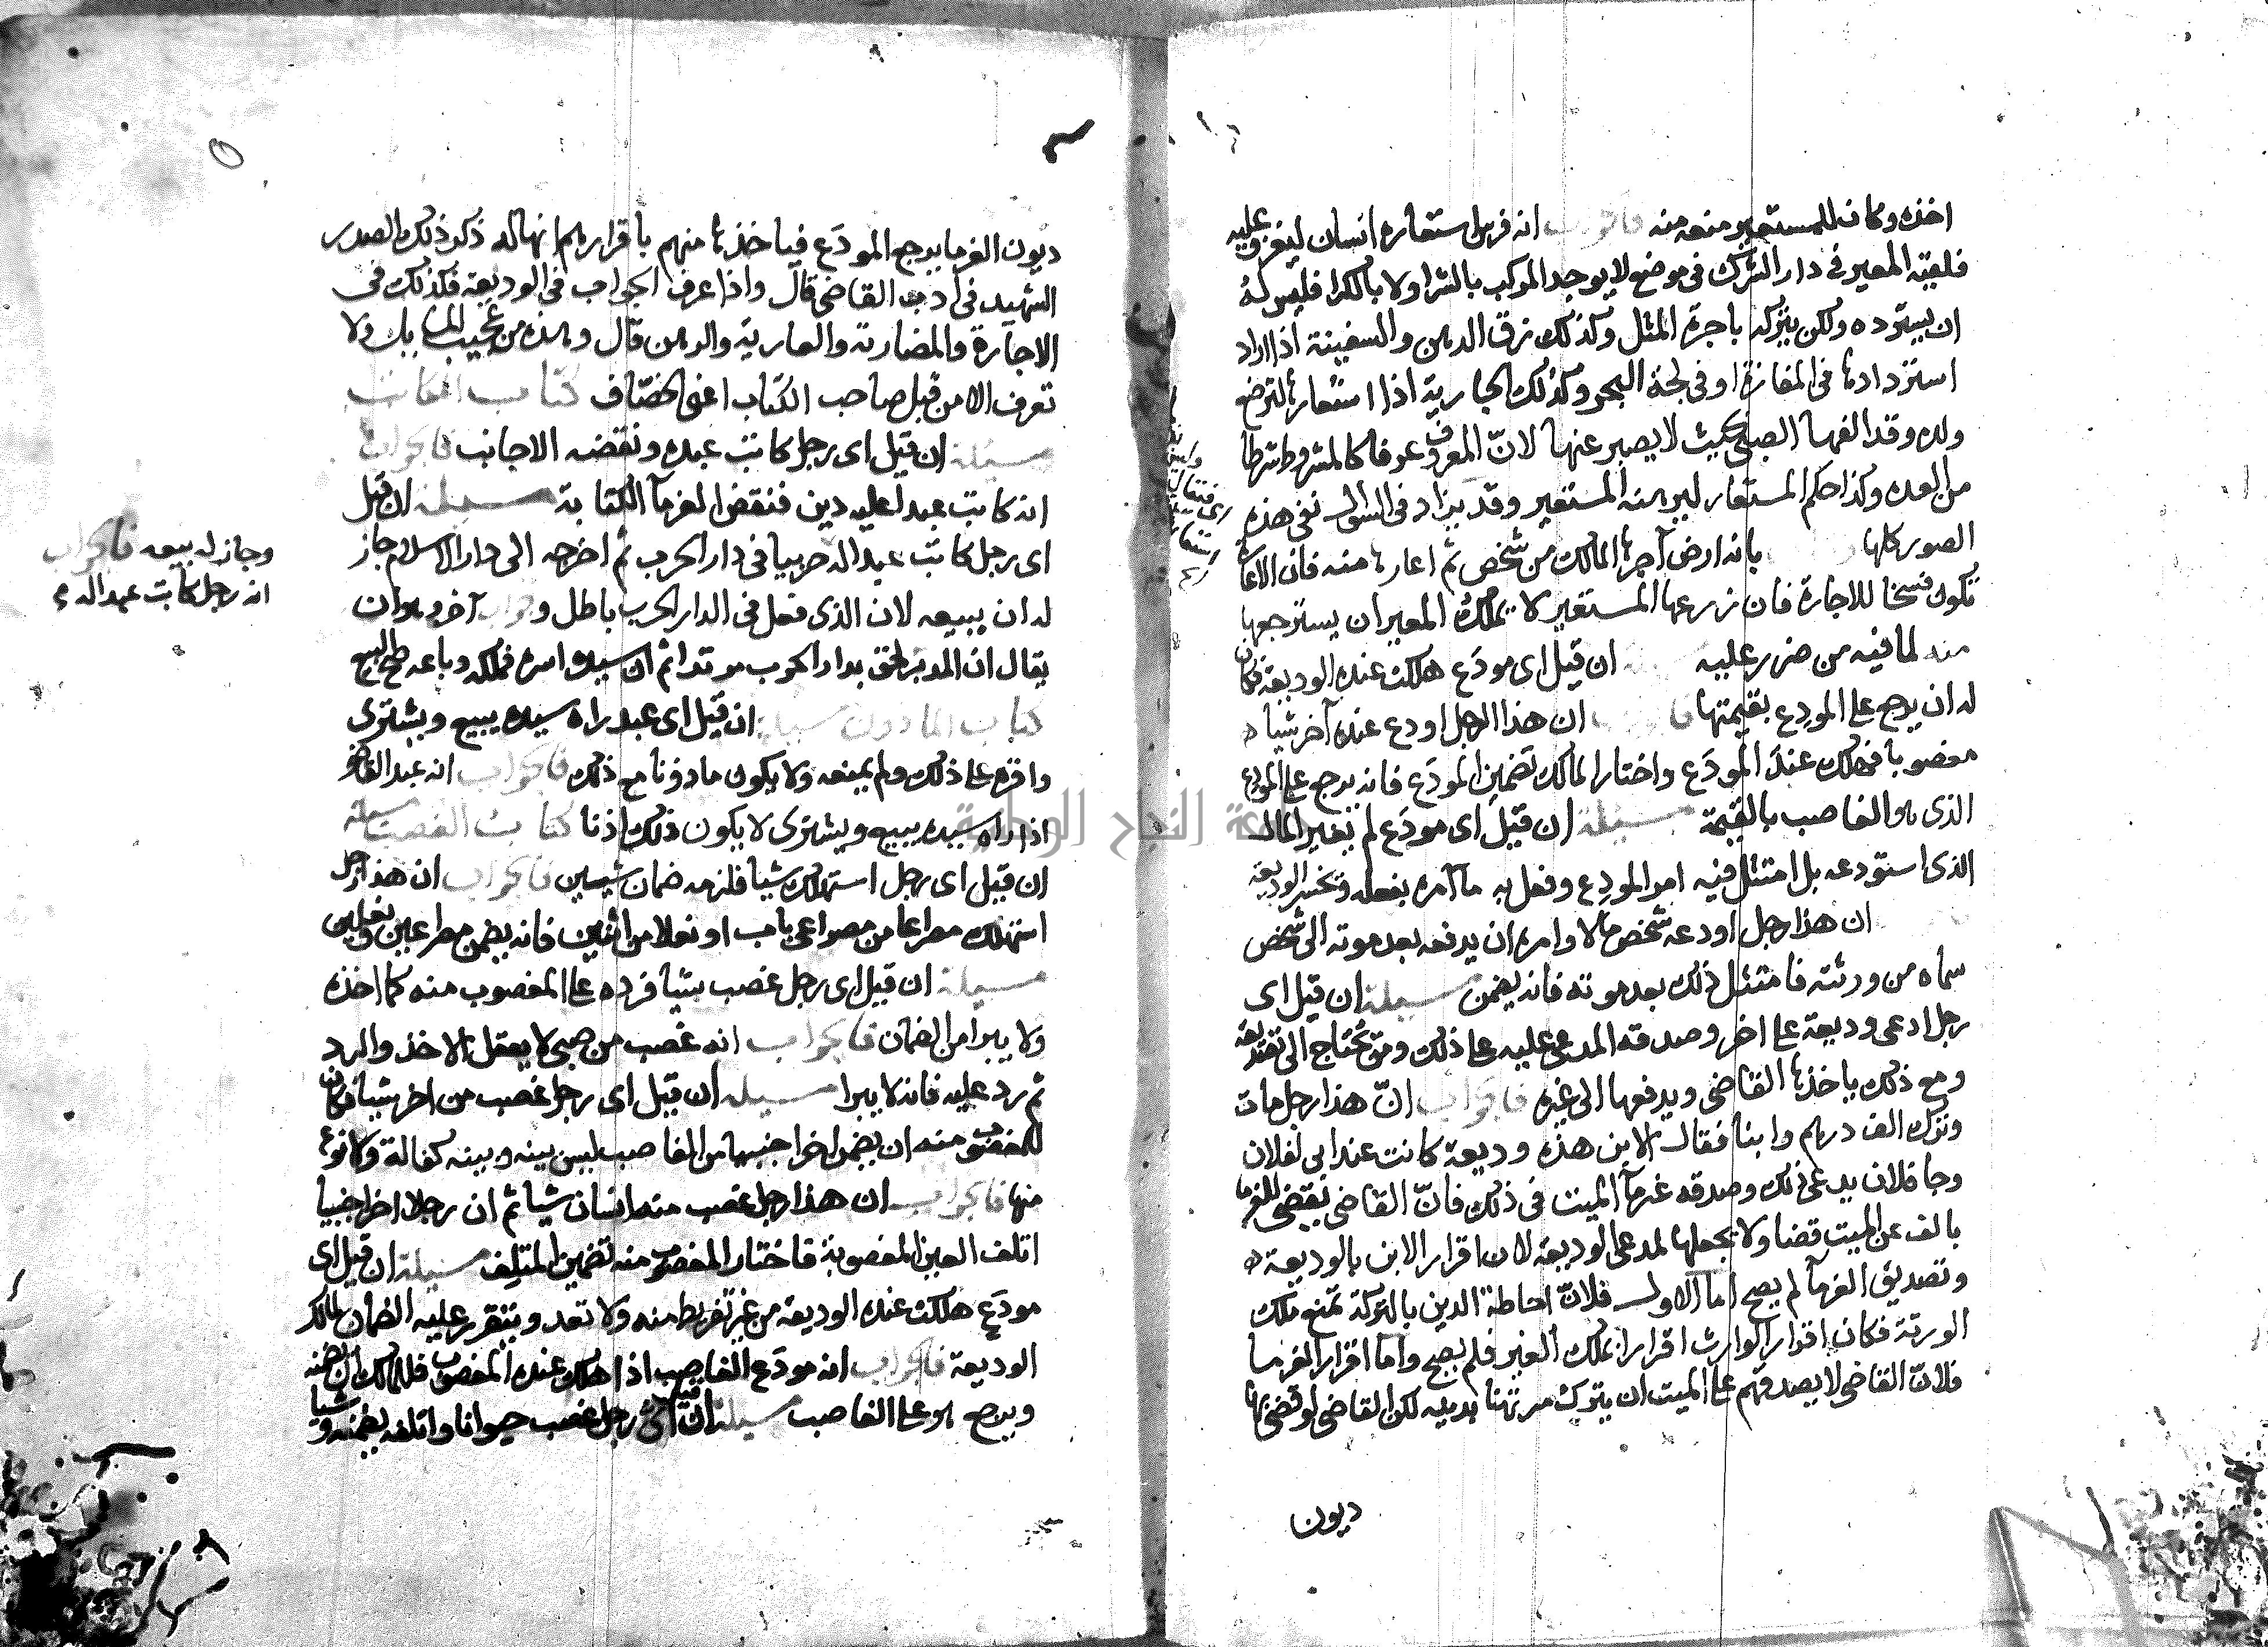 اخذه وكان للمستعير منعه منه فالجواب انه فرس استعاره انسان ليغزو عليه
فلقيه المعير في دار الشرك في موضع لا يوجد المركب بالشرا ولا بالكرا فليس له
ان يسترده ولكن يتركه باجرة المثل وكذلك زق الدهن والسفينة اذا اراد
استردادها في المفازة او في لجة البحر وكذلك الجارية اذا استعارها لترضع
ولده وقد الفها الصبي بحيث لا يصبر عنها لانّ المعروف عرفا كالمشروط شرطا
من العده وكذا حكم المستعار ليرهنه المستعير وقد يزاد في السوال نفي هذه
الصور كلها بانه ارض آجرها المالك من شخص ثم اعارها منه فان الاعارة
تكون فسخا للاجارة فان زرعها المستعير لا يملك المعير ان يسترجعها
منه لما فيه من ضرر عليه ان قيل اى مودَع هلكت عنده الوديعة فكان
له ان يرجع على المودِع بقيمتها ان هذا الرجل اودع عنده آخر شيا
مغصوبا فهلك عند المودَع واختار المالك تضمين المودَع فانه يرجع على المودع
الذى هو الغاصب بالقيمة مسيلة ان قيل اى مودَع لم يغير المال
الذى استودعه بل امتثل فيه امر المودِع وفعل به ما آمره بفعله وتخير الوديعة
ان هذا رجل اودعه شخص مالا وامره ان يدفعه بعد موته الى شخص
سماه من ورثته فامتثل ذلك بعد موته فانه يضمن مسيلة ان قيل اى
رجل ادعى وديعة على اخر وصدقه المدعى عليه على ذلك
ومع ذلك ياخذها القاضى ويدفعها الى غيره فالجواب انّ هذا رجل مات
وترك الف درهم وابنا فقال الابن هذه وديعة كانت عند ابى لفلان
وجا فلان يدعى ذلك وصدقه غرمآ الميت في ذلك فانّ القاضى يقضى للغرما
بالف عن الميت قضا ولا يجعلها لمدعى الوديعة لان اقرار الابن بالوديعة
وتصديق الغرمآ لم يصح اما الاول فلانّ احاطة الدين بالتركة تمنع ملك
الورثة فكان اقرار الوارث اقرارا بملك الغير فلم يصح واما اقرار الغرما
فلانّ القاضى لا يصدقهم على الميت ان يترك مرتهنا بدينه لكن القاضى لو قضى بها
ديون
ديون الغرما يرجع المودَع فياخذها منهم باقرارهم انها له ذكر ذلك الصدر
الشهيد في ادب القاضى قال واذا عرف الجواب في الوديعة فكذلك في
الاجارة والمضاربة والعارية والرهن قال وهذه من عجيب المسايل ولا
تعرف الا من قبل صاحب الكتاب اعنى الخصّاف كتاب المكاتب
مسيلة ان قيل اى رجل كاتب عبده ونقضه الاجانب فالجواب
انه كاتب عبدا عليه دين فنقض الغرمآ الكتابة مسيلة ان قيل
اى رجل كاتب عبدا له حربيا في دار الحرب ثم اخرجه الى دار الاسلام جاز
له ان يبيعه لان الذى فعل في الدار الحرب باطل وجواب آخر وهو ان
يقال ان المدبر لحق بدار الحرب مرتدا ثم ان سيده اسره فملكه وباعه صح البيع
كتاب الماذون مسيلة ان قيل اى عبد راه سيده يبيع ويشترى
واقره على ذلك ولم يمنعه ولا يكون ماذونا مع ذلك فالجواب انه عبد القاضى
اذا راه سيده يبيع ويشترى لا يكون ذلك اذنا كتاب الغصب مسيلة
ان قيل اى رجل استهلك شيا فلزمه ضمان شيين فالجواب ان هذا رجل
استهلك مصراعا من مصراعى باب او نعلا من اثنين فانه يضمن مصراعين ونعلين
مسيلة ان قيل اى رجل غصب شيا فرده على المغصوب منه كما اخذه
ولا يبرا من الضمان فالجواب انه غصب من صبى لا يعقل الاخذ والرد
ثم رد عليه فانه لا يبرا مسيلة ان قيل اى رجل غصب من اخر شيا فكان
للمغصوب منه ان يضمن اخر اجنبيا من الغاصب ليس بينه وبينه كفالة ولا نوع
منها فالجواب ان هذا رجل غصب منه انسان شيا ثم ان رجلا اخر اجنبيا
اتلف العين المغصوبة فاختار المغصوب منه تضمين المتلِف مسيلة ان قيل اى
مودَع هلكت عنده الوديعة من غير تفريط منه ولا تعد ويتقرر عليه الضمان لمالك
الوديعة فالجواب انه مودَع الغاصب اذا هلك عنده المغصوب فللمالك ان يضمنه
ويرجع هو على الغاصب مسيلة ان قيل اى رجل غصب حيوانا واتلفه يضمنه وشيا
وجاز له بيعه فالجواب
انه رجل كاتب عبدا له
جامعة النجاح الوطنية